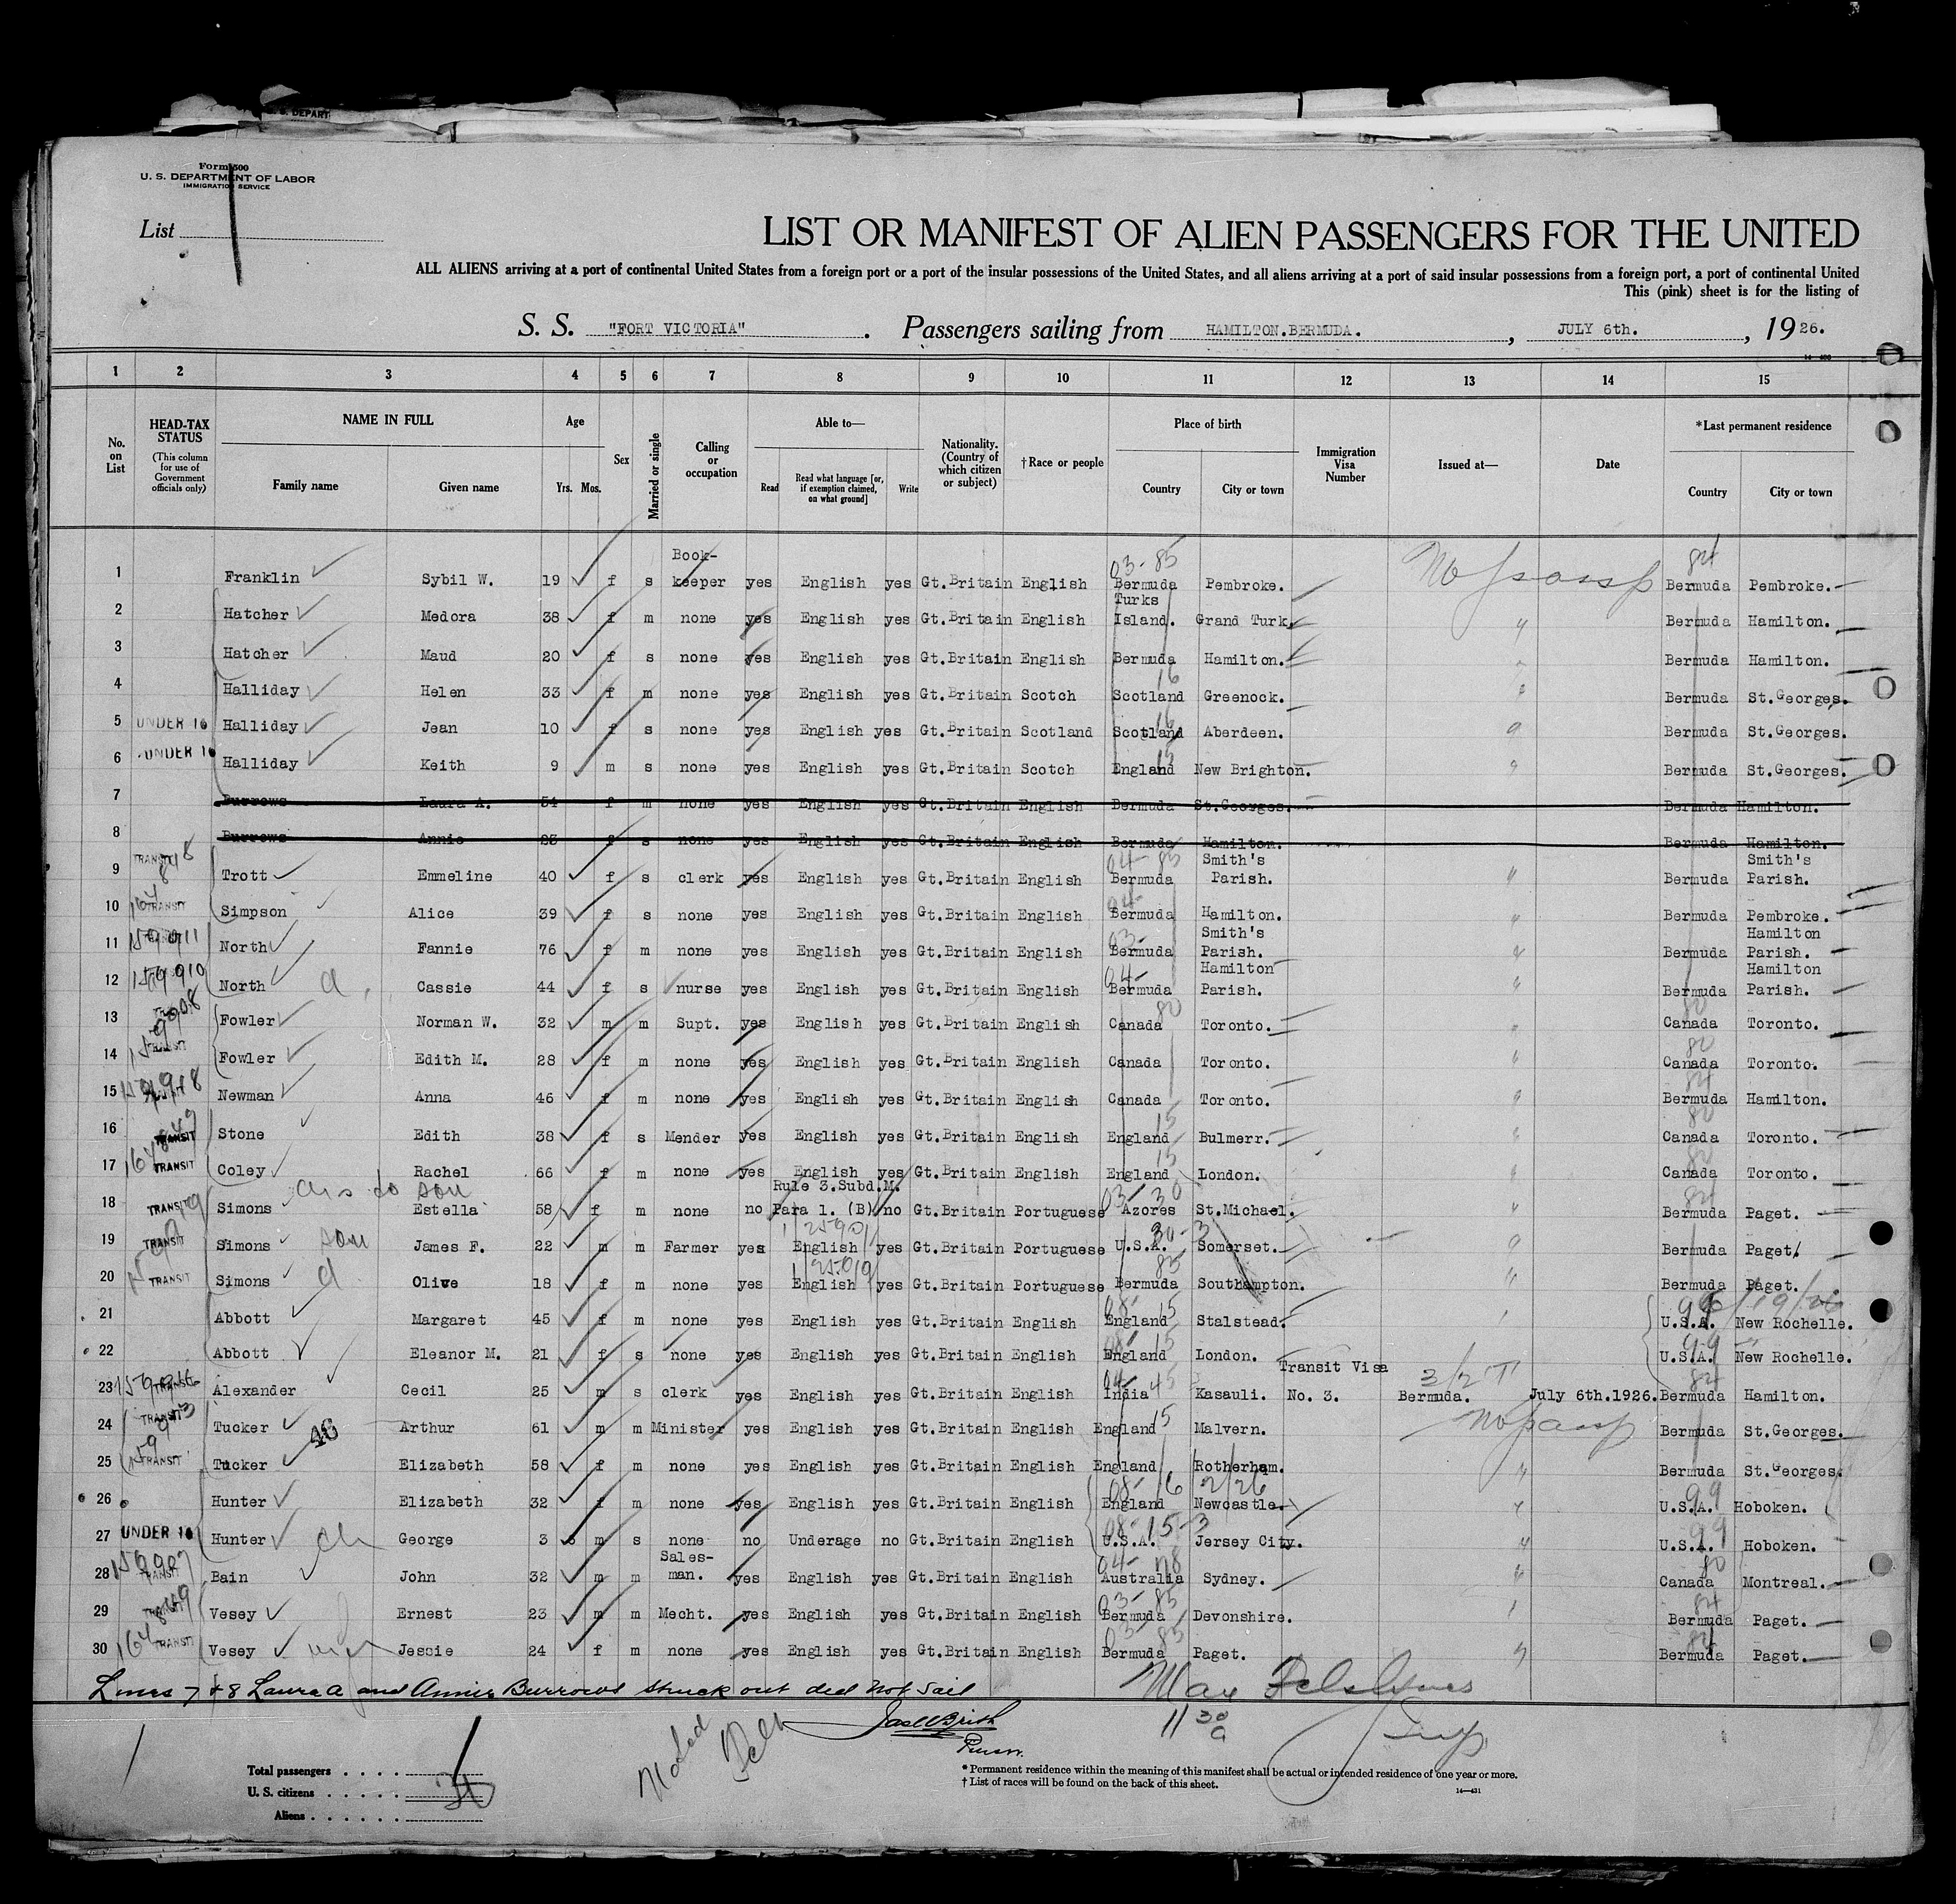 Form 500
U. S. DEPARTMENT OF LABOR
IMMIGRATION SERVICE
List
LIST OR MANIFEST OF ALIEN PASSENGERS FOR THE UNITED
ALL ALIENS arriving at a port of continental United States from a foreign port or a port of the insular possessions of the United States, and all aliens arriving at a port of said insular possessions from a foreign port, a port of continental United
This (pink) sheet is for the listing of
S. S. "FORT VICTORIA". Passengers sailing from HAMILTON.BERMUDA. , JULY 6th. , 1926.
1 2 3 4 5 6 7 8 9 10 11 12 13 14 15
No. on List HEAD-TAX STATUS (This column for use of Government officials only) NAME IN FULL Family name Given name Age Yrs. Mos. Sex Married or single Calling or occupation Able to— Read Read what language [or, if exemption claimed, on what ground] Write Nationality. (Country of which citizen or subject) †Race or people Place of birth Country City or town Immigration Visa Number Issued at— Date *Last permanent residence Country City or town
1 Franklin Sybil W. 19 f s Book-keeper yes English yes Gt.Britain English Bermuda Pembroke. No passp Bermuda Pembroke.
2 Hatcher Medora 38 f m none yes English yes Gt.Britain English Turks Island. Grand Turk. Bermuda Hamilton.
3 Hatcher Maud 20 f s none yes English yes Gt.Britain English Bermuda Hamilton. Bermuda Hamilton.
4 Halliday Helen 33 f m none yes English yes Gt.Britain Scotch Scotland Greenock. Bermuda St.Georges.
5 UNDER 16 Halliday Jean 10 f s none yes English yes Gt.Britain Scotland Scotland Aberdeen. Bermuda St.Georges.
6 UNDER 16 Halliday Keith 9 m s none yes English yes Gt.Britain Scotch England New Brighton. Bermuda St.Georges.
7 Burrows Laura A. 54 f m none yes English yes Gt.Britain English Bermuda St.Georges. Bermuda Hamilton.
8 Burrows Annie 23 f s none yes English yes Gt.Britain English Bermuda Hamilton. Bermuda Hamilton.
9 TRANSIT Trott Emmeline 40 f s clerk yes English yes Gt.Britain English Bermuda Smith's Parish. Bermuda Smith's Parish.
10 TRANSIT Simpson Alice 39 f s none yes English yes Gt.Britain English Bermuda Hamilton. Bermuda Pembroke.
11 North Fannie 76 f m none yes English yes Gt.Britain English Bermuda Smith's Parish. Bermuda Hamilton Parish.
12 North Cassie 44 f s nurse yes English yes Gt.Britain English Bermuda Hamilton Parish. Bermuda Hamilton Parish.
13 Fowler Norman W. 32 m m Supt. yes English yes Gt.Britain English Canada Toronto. Canada Toronto.
14 TRANSIT Fowler Edith M. 28 f m none yes English yes Gt.Britain English Canada Toronto. Canada Toronto.
15 Newman Anna 46 f m none yes English yes Gt.Britain English Canada Toronto. Bermuda Hamilton.
16 TRANSIT Stone Edith 38 f s Mender yes English yes Gt.Britain English England Bulmerr. Canada Toronto.
17 TRANSIT Coley Rachel 66 f m none yes English yes Gt.Britain English England London. Canada Toronto.
18 TRANSIT Simons Estella 58 f m none no Rule 3.Subd.M. Para 1. (B) no Gt.Britain Portuguese Azores St.Michael. Bermuda Paget.
19 TRANSIT Simons son James F. 22 m m Farmer yes English yes Gt.Britain Portuguese U.S.A. Somerset. Bermuda Paget.
20 TRANSIT Simons Olive 18 f m none yes English yes Gt.Britain Portuguese Bermuda Southampton. Bermuda Paget.
21 Abbott Margaret 45 f m none yes English yes Gt.Britain English England Stalstead. U.S.A. New Rochelle.
22 Abbott Eleanor M. 21 f s none yes English yes Gt.Britain English England London. U.S.A. New Rochelle.
23 TRANSIT Alexander Cecil 25 m s clerk yes English yes Gt.Britain English India Kasauli. Transit Visa No. 3. Bermuda. July 6th.1926. Bermuda Hamilton.
24 TRANSIT Tucker Arthur 61 m m Minister yes English yes Gt.Britain English England Malvern. No passp Bermuda St.Georges.
25 TRANSIT Tucker Elizabeth 58 f m none yes English yes Gt.Britain English England Rotherham. Bermuda St.Georges.
26 Hunter Elizabeth 32 f m none yes English yes Gt.Britain English England Newcastle. U.S.A. Hoboken.
27 UNDER 16 Hunter ch George 3 m s none no Underage no Gt.Britain English U.S.A. Jersey City. U.S.A. Hoboken.
28 TRANSIT Bain John 32 m m Sales-man. yes English yes Gt.Britain English Australia Sydney. Canada Montreal.
29 TRANSIT Vesey Ernest 23 m m Mecht. yes English yes Gt.Britain English Bermuda Devonshire. Bermuda Paget.
30 TRANSIT Vesey Jessie 24 f m none yes English yes Gt.Britain English Bermuda Paget. Bermuda Paget.
Lines 7 & 8 Laura A and Annie Burrows struck out did not sail
Purser.
Total passengers
U. S. citizens
Aliens
* Permanent residence within the meaning of this manifest shall be actual or intended residence of one year or more.
† List of races will be found on the back of this sheet.
14—431